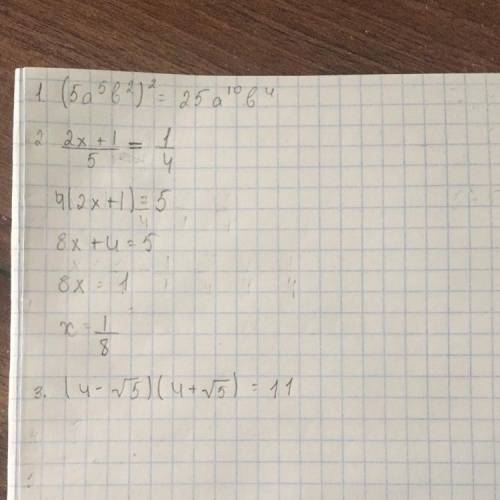 1. (5a⁵b²)² = 25a¹⁰b⁴
2 (2x + 1)/5 = 1/4
4(2x+1) = 5
8x + 4 = 5
8x = 1
x = 1/8
3. (4 - √5)(4 + √5) = 11